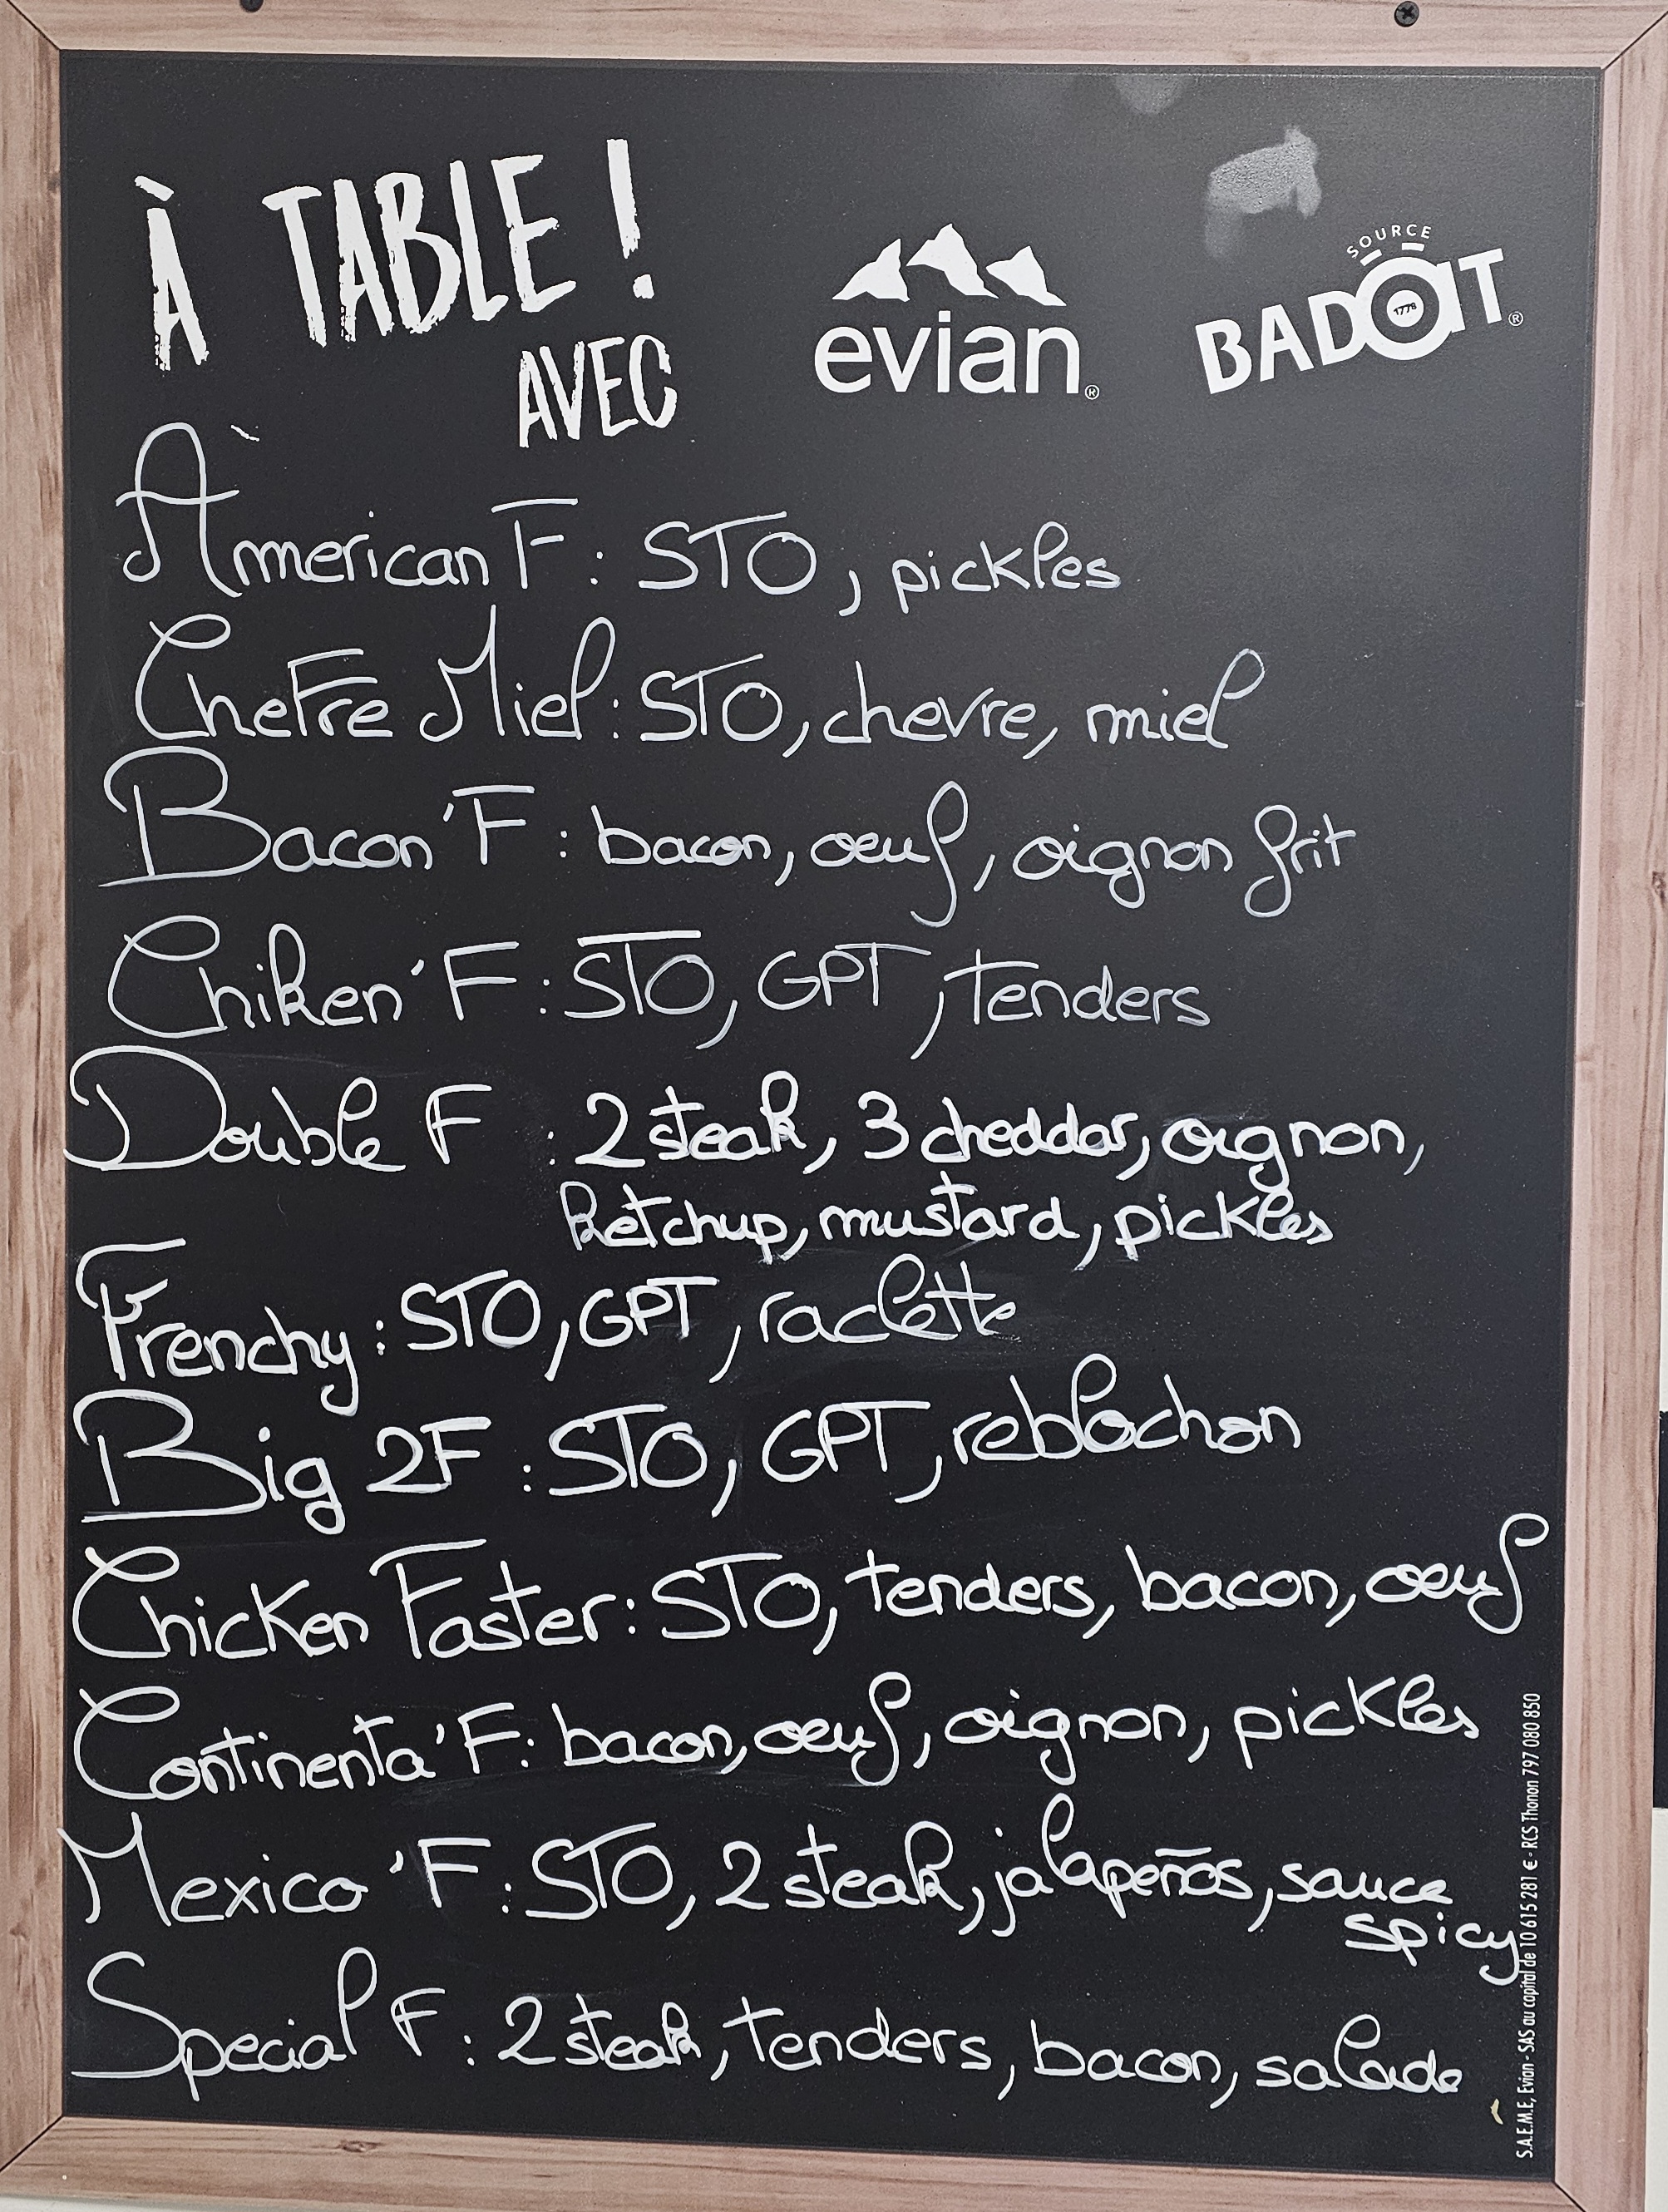 À TABLE !
AVEC
evian®
SOURCE
BADOIT®
1778
American F : STO, pickles
CheFre Miel : STO, chevre, miel
Bacon'F : bacon, oeuf, oignon frit
Chiken'F : STO, GPT, tenders
Double F : 2 steak, 3 cheddar, oignon,
ketchup, mustard, pickles
Frenchy : STO, GPT, raclette
Big 2F : STO, GPT, reblochon
Chicken Faster : STO, tenders, bacon, oeuf
Continenta'F : bacon, oeuf, oignon, pickles
Mexico'F : STO, 2 steak, jalapeños, sauce
spicy
Special F : 2 steak, tenders, bacon, salade
S.A.E.M.E, Evian - SAS au capital de 10 615 281 € - RCS Thonon 797 080 850